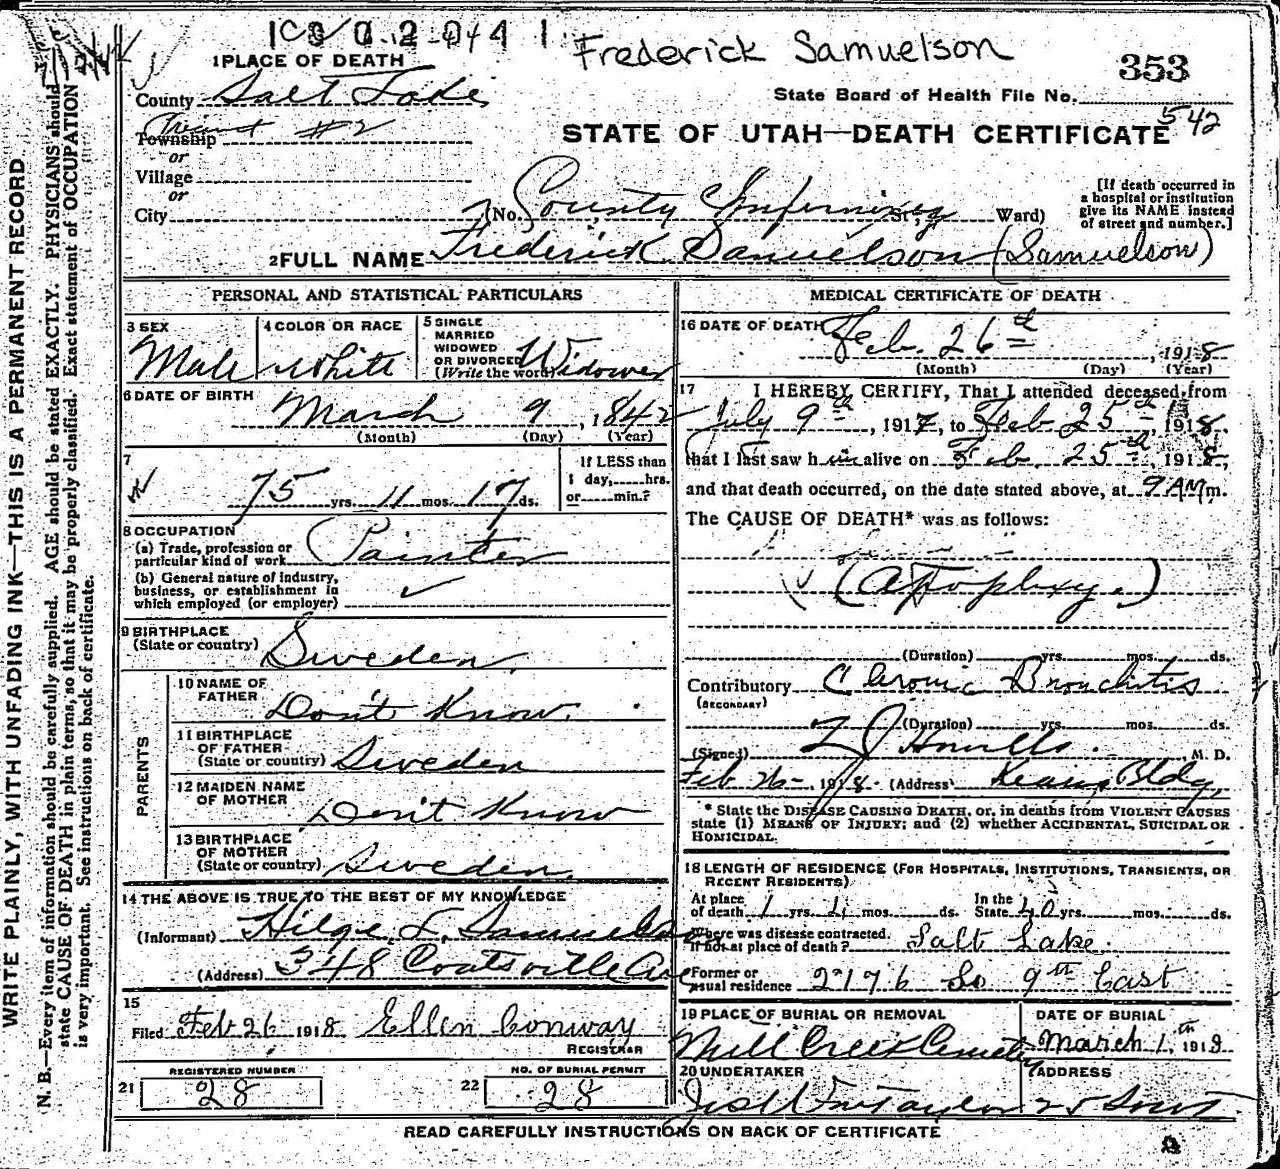 Frederick Samuelson
353
1 PLACE OF DEATH
County Salt Lake
State Board of Health File No. 542
STATE OF UTAH—DEATH CERTIFICATE
Township #2
or
Village
or
City (No. County Infirmary St.; Ward)
[If death occurred in a hospital or institution give its NAME instead of street and number.]
2 FULL NAME Frederick Samuelson (Samuelson)
PERSONAL AND STATISTICAL PARTICULARS
3 SEX Male
4 COLOR OR RACE White
5 SINGLE MARRIED WIDOWED OR DIVORCED (Write the word) Widower
6 DATE OF BIRTH March 9, 1842
(Month) (Day) (Year)
7 75 yrs. 11 mos. 17 ds.
If LESS than 1 day, hrs. or min.?
8 OCCUPATION
(a) Trade, profession or particular kind of work Painter
(b) General nature of industry, business, or establishment in which employed (or employer)
9 BIRTHPLACE (State or country) Sweden
PARENTS
10 NAME OF FATHER Don't Know.
11 BIRTHPLACE OF FATHER (State or country) Sweden
12 MAIDEN NAME OF MOTHER Don't Know
13 BIRTHPLACE OF MOTHER (State or country) Sweden.
14 THE ABOVE IS TRUE TO THE BEST OF MY KNOWLEDGE
(Informant) L. Samuelson
(Address) 348 Coatsville Ave
15
Filed Feb 26 1918 Ellen Conway
REGISTRAR
REGISTERED NUMBER
21 28
NO. OF BURIAL PERMIT
22 28
MEDICAL CERTIFICATE OF DEATH
16 DATE OF DEATH Feb. 26th, 1918
(Month) (Day) (Year)
17 I HEREBY CERTIFY, That I attended deceased from
July 9th, 1917, to Feb 25th, 1918,
that I last saw him alive on Feb. 25th, 1918,
and that death occurred, on the date stated above, at 9 AM m.
The CAUSE OF DEATH* was as follows:
(Apoplexy.)
(Duration) yrs. mos. ds.
Contributory Chronic Bronchitis
(SECONDARY)
(Duration) yrs. mos. ds.
(Signed) M. D.
Feb 26 1918. (Address) Kearns Bldg.
* State the DISEASE CAUSING DEATH, or, in deaths from VIOLENT CAUSES
state (1) MEANS OF INJURY; and (2) whether ACCIDENTAL, SUICIDAL OR
HOMICIDAL.
18 LENGTH OF RESIDENCE (FOR HOSPITALS, INSTITUTIONS, TRANSIENTS, OR
RECENT RESIDENTS)
At place of death 1 yrs. 4 mos. ds. In the State 40 yrs. mos. ds.
Where was disease contracted, If not at place of death? Salt Lake.
Former or usual residence 2176 So 9th East
19 PLACE OF BURIAL OR REMOVAL
Mill Creek Cemetery
DATE OF BURIAL
March 1th, 1918
20 UNDERTAKER
Taylor
ADDRESS
READ CAREFULLY INSTRUCTIONS ON BACK OF CERTIFICATE
WRITE PLAINLY, WITH UNFADING INK—THIS IS A PERMANENT RECORD
N. B.—Every item of information should be carefully supplied. AGE should be stated EXACTLY. PHYSICIANS should
state CAUSE OF DEATH in plain terms, so that it may be properly classified. Exact statement of OCCUPATION
is very important. See instructions on back of certificate.